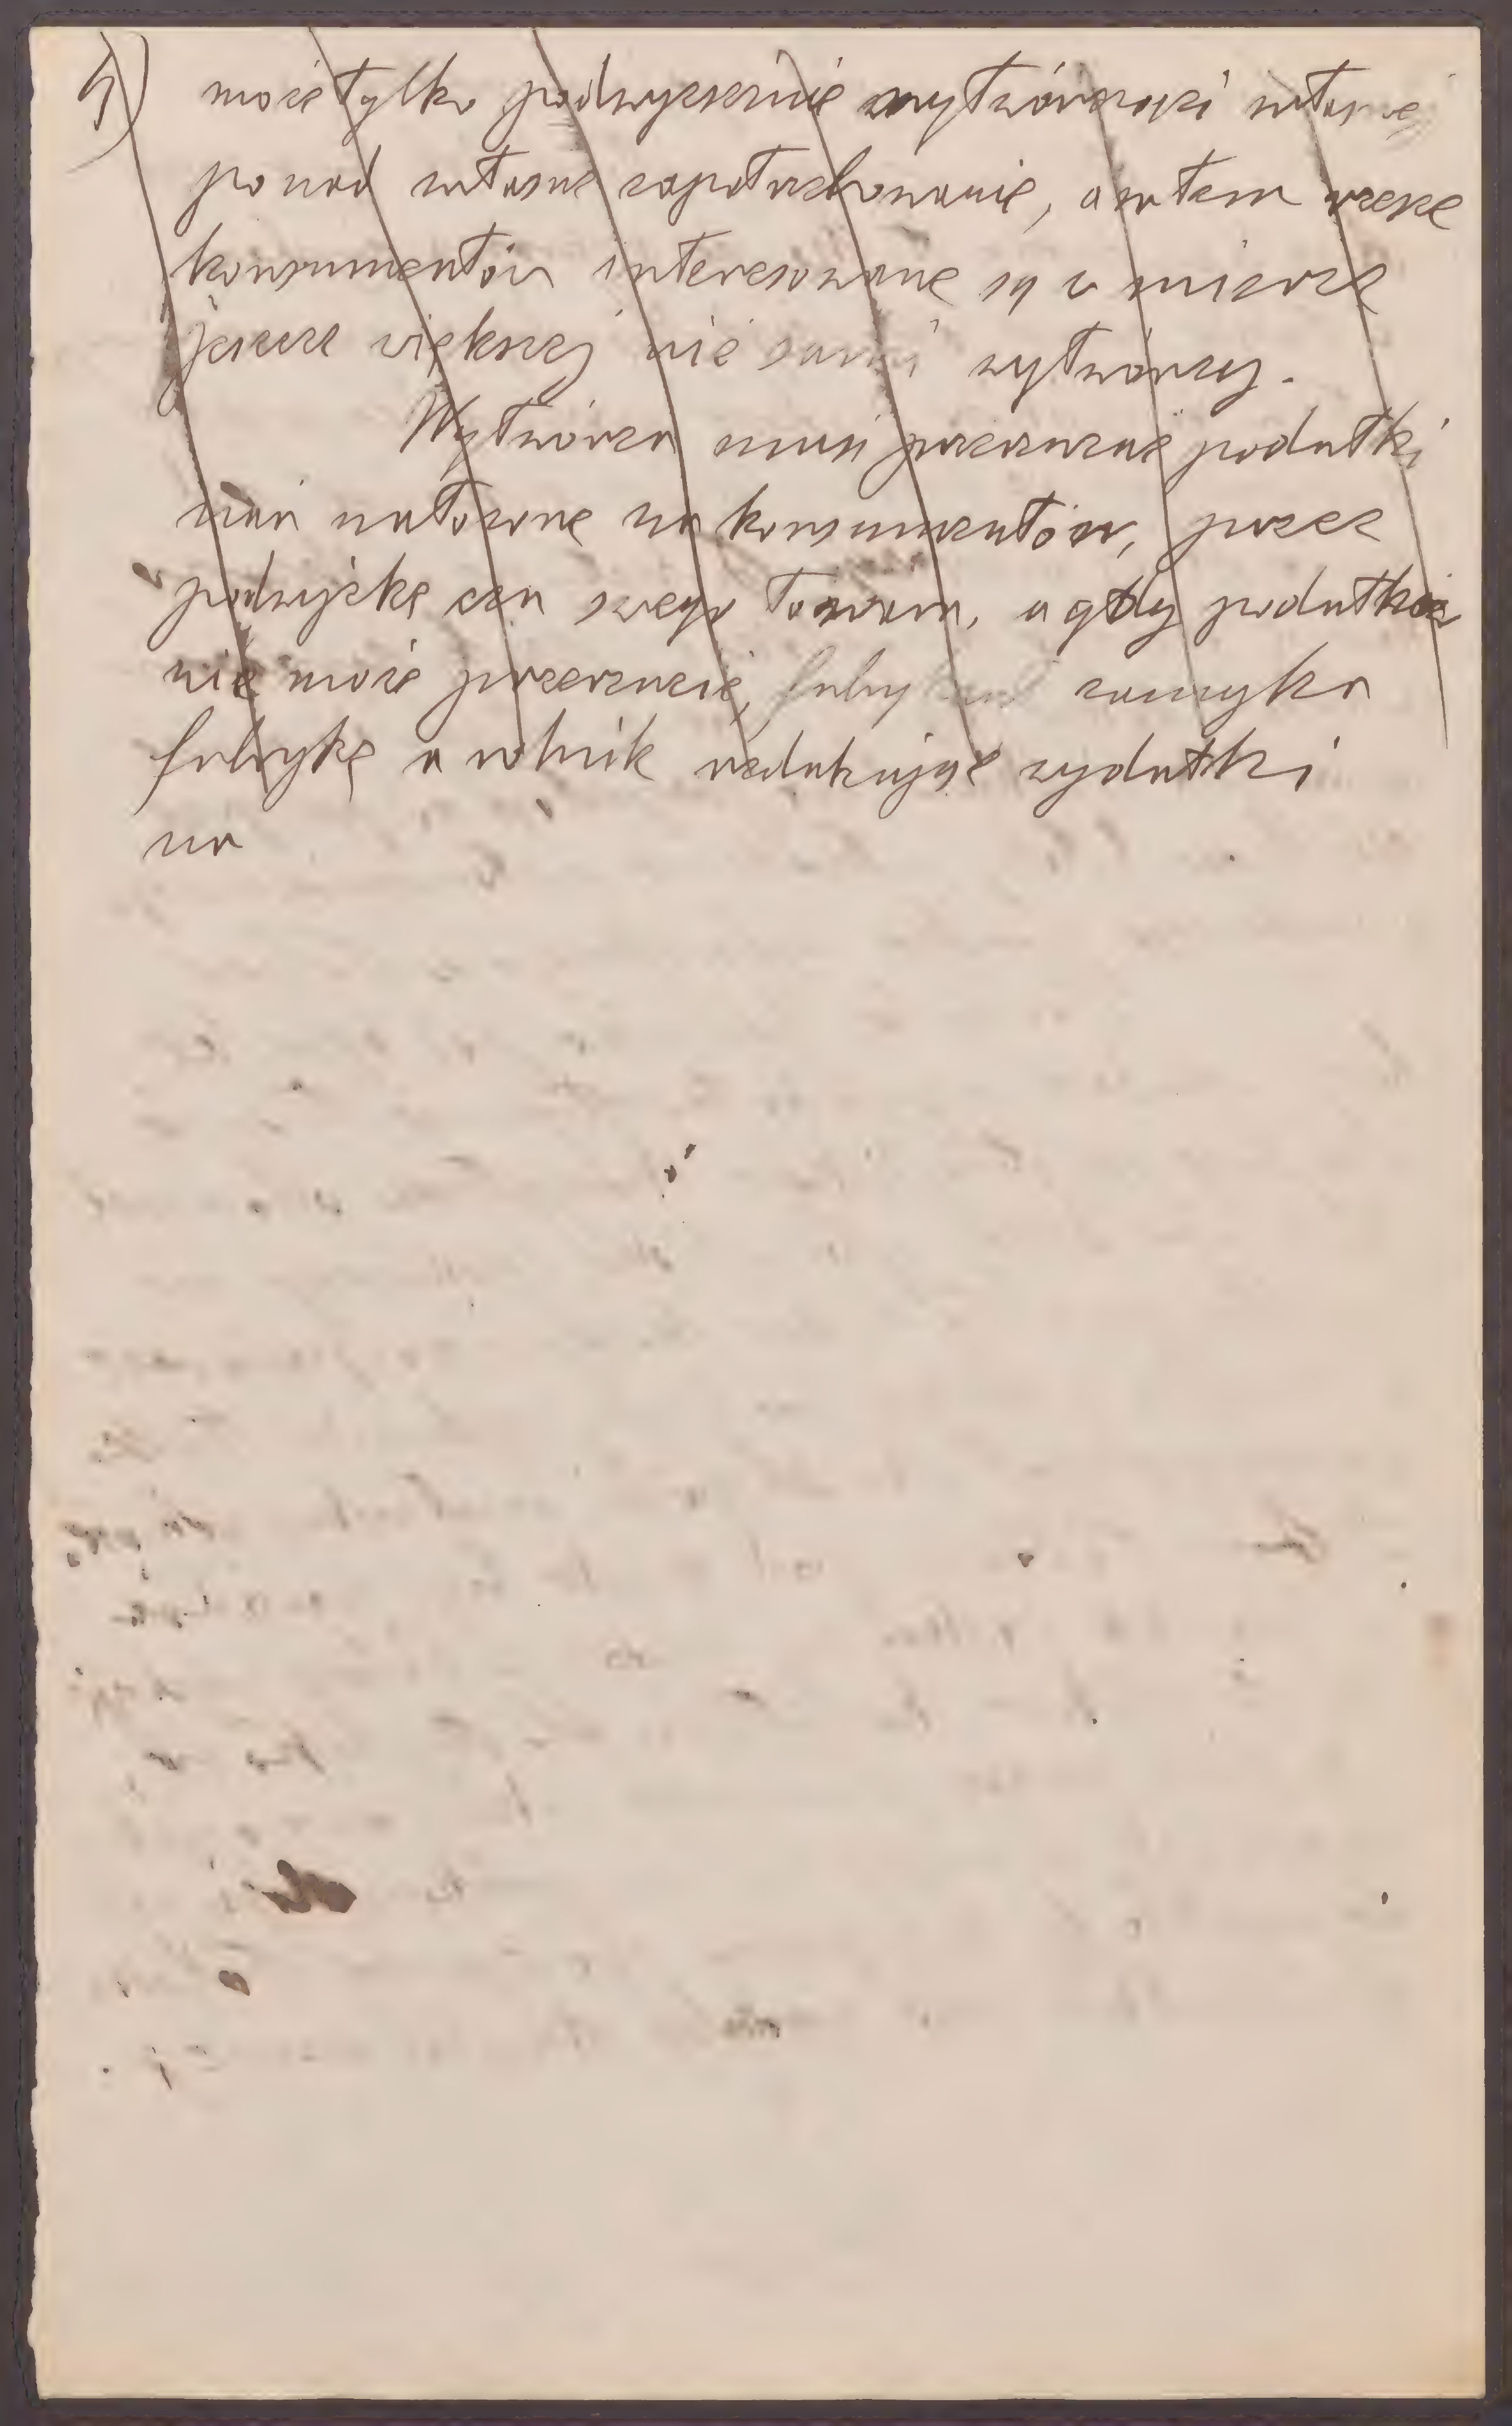 4) może tylko podwyższenie wytwórczości własnej
ponad własne zapotrzebowanie, a w tem rzesze
konsumentów interesowane są w mierze
jeszcze większej niż sami wytwórcy.
Wytwórca musi przerzucać podatki
nań nałożone na konsumentów, przez
podwyżkę cen swego towaru, a gdy podatków
nie może przerzucić, fabrykant zamyka
fabrykę a rolnik redukując wydatki
na